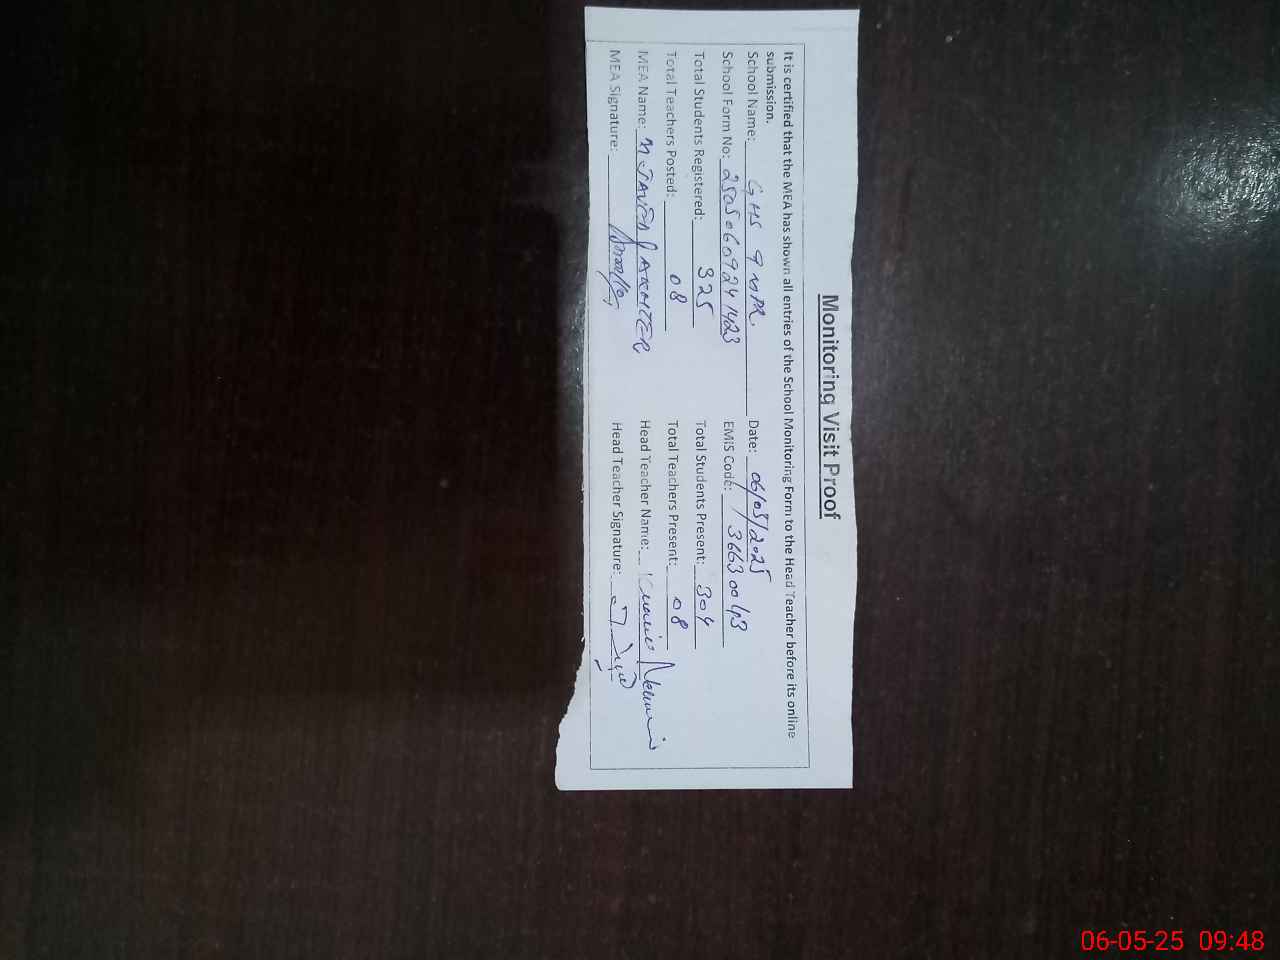 Monitoring Visit Proof
It is certified that the MEA has shown all entries of the School Monitoring Form to the Head Teacher before its online
submission.
School Name: GHS 9 MPR. Date: 06/05/2025
School Form No: 25050609241423 EMIS Code: 36630043
Total Students Registered: 325 Total Students Present: 304
Total Teachers Posted: 08 Total Teachers Present: 08
MEA Name: M JAVED AKHTER Head Teacher Name:
MEA Signature: Head Teacher Signature:
06-05-25 09:48